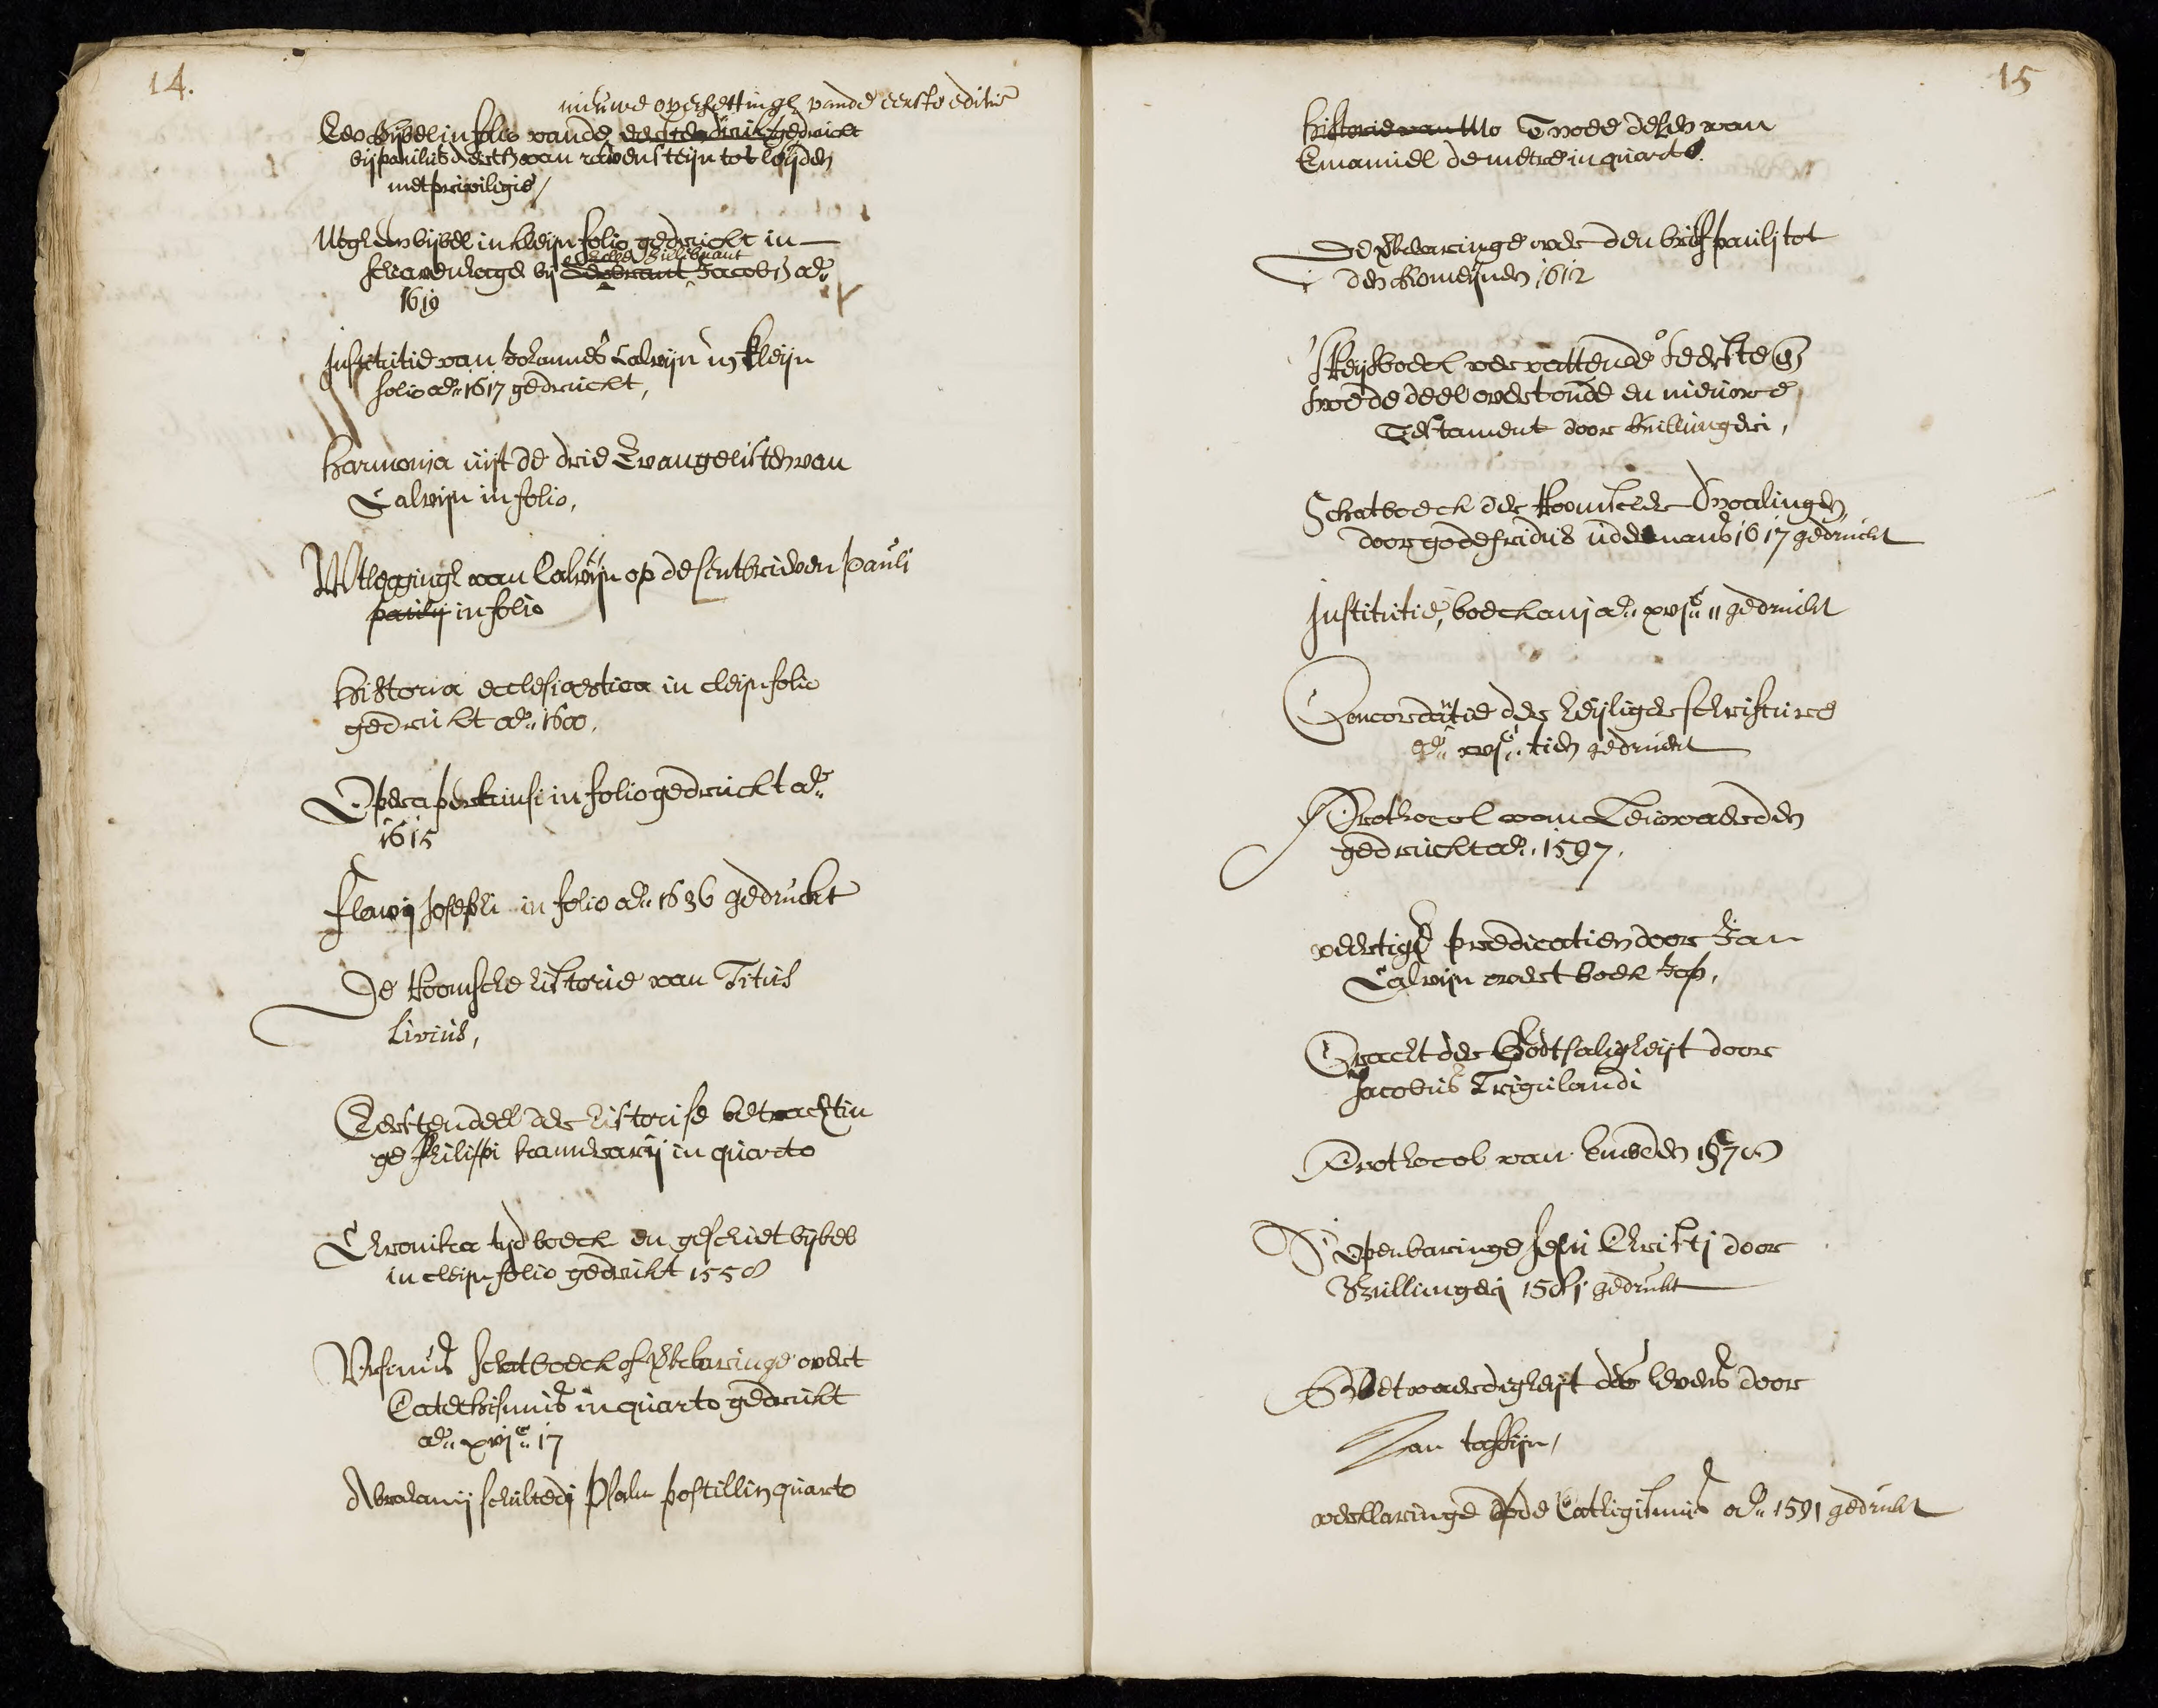 14.
nieuwe oversettingh vande eerste editie
Een bijbel in folio vande eersten druck gedruckt
bij paulus Aertsz van ravensteijn tot leijden
met previlegie/
Noch een bijbel in kleijn folio gedruckt in
schravenhage bij Hillebrant Jacobsz ao
1619
Institutie van Johannes Calvijn in kleijn
folio ao 1617 gedruckt,
Harmonia uijt de drie Evangelisten van
Calvijn in folio,
Wtleggingh van Calvijn op de sentbrieven pauli
paulij in folio
Historia ecclesiastica in cleijn folio
gedruckt ao 1600,
Opera perkinsi in folio gedruckt ao
1615
Flavij Josephi in folio ao 1636 gedruckt
De Roomsche historie van Titus
Livius,
Eersten deel der historise betrachtin
ge Philippi kamerarij in quarto
Chronika tijdboeck en geschict bijbel
in cleijn folio gedruckt 1558
Ursinus schatboeck of verklaringe overt
Catechismus in quarto gedruckt
ao xvjc 17
Abrahamij schultetij psalm postill in quarto
15
Historie van Mo Twee delen van
Emanuel de metre in quarto
De verklaringe over den brief paulj tot
den Romeijnen 1612
Huijsboeck vervattende t eerste en
twede deel overt oude en nieuwe
Testament door bullingeri,
Schatboeck der Roomscher dwalingen,
door godefridus udemans 1617 gedruckt
Institutie, boeck anj ao xvjc 11 gedruckt
Concordantie der heijliger schrifture
ao xvjc tien gedruckt
Prothocol van Leuwaerden
gedruckt ao 1597,
veertigh predicatien door Jan
Calvijn overt boek Job,
Cracht der Godtsaligheijt door
Jacobus Trigulandi
Prothocol van Embden 1578
D' openbaringe Jesu Christi door
Bullingerj gedruckt
Boetvaerdigheijt des levens door
Jan taffijn,
verklaringe op de Cathegismus ao 1591 gedruckt